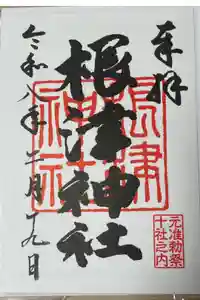 奉拝
根津神社
令和八年 月十九日
根津
神社
元准勅祭
十社之内